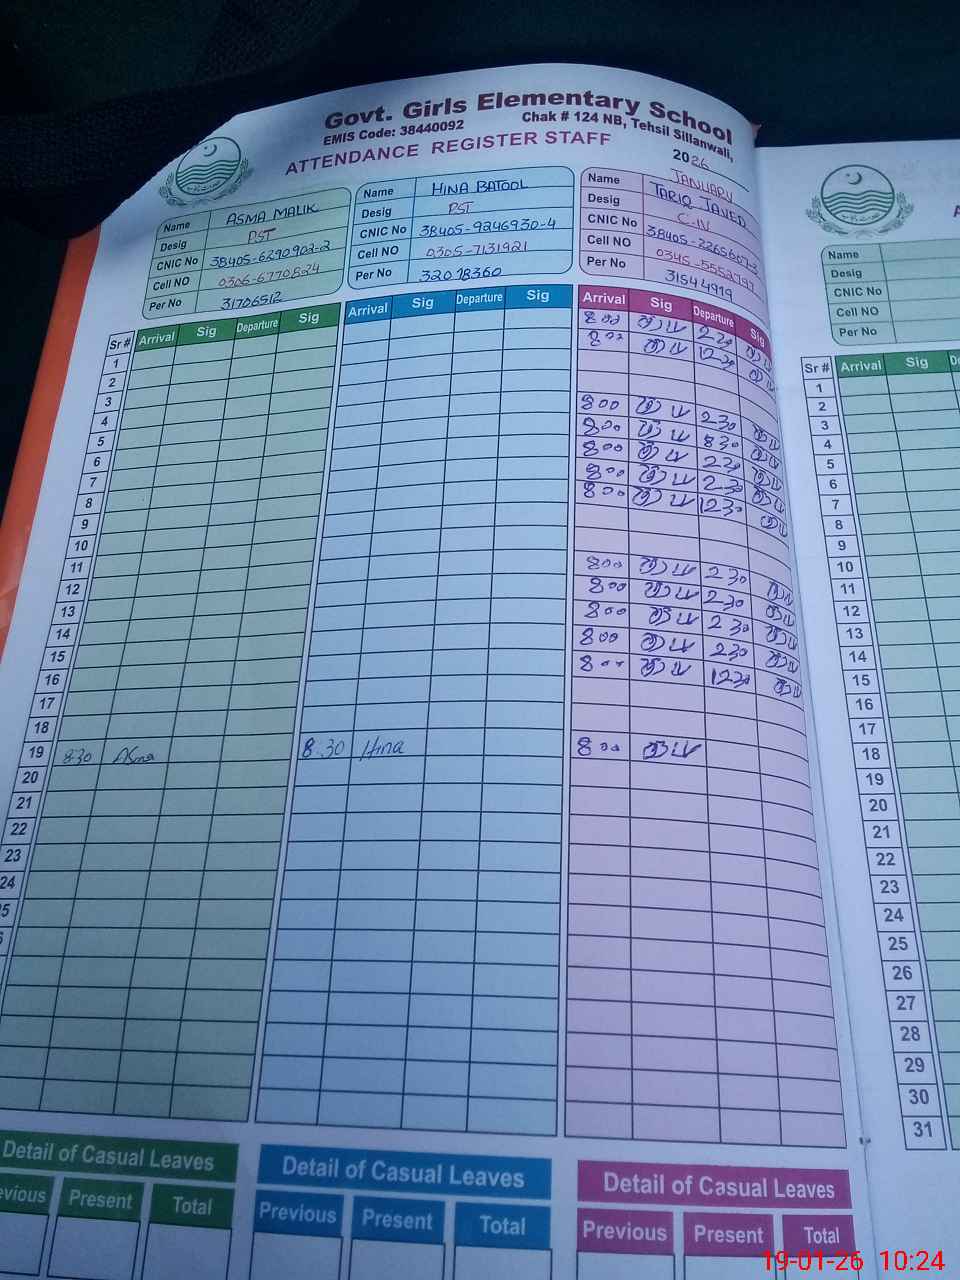 Govt. Girls Elementary School
EMIS Code: 38440092 Chak # 124 NB, Tehsil Sillanwali,
ATTENDANCE REGISTER STAFF 2026
JANUARY
Name ASMA MALIK
Desig PST
CNIC No 38405-6290902-2
Cell NO 0306-6770824
Per No 31706512
Name HINA BATOOL
Desig PST
CNIC No 38405-9246930-4
Cell NO 0305-7131921
Per No 32078360
Name TARIQ JAVED
Desig C-IV
CNIC No
Cell NO
Per No 31544919
Sr # Arrival Sig Departure Sig Arrival Sig Departure Sig Arrival Sig Departure Sig
1 800 230
2 800 1230
3
4
5 800 230
6 800 830
7 800 230
8 800 230
9 800 1230
10
11
12 800 230
13 800 230
14 800 230
15 800 230
16 800 1230
17
18
19 830 Asma 8.30 Hina 800
20
21
22
23
24
Detail of Casual Leaves Detail of Casual Leaves Detail of Casual Leaves
Present Total Previous Present Total Previous Present Total
Name
Desig
CNIC No
Cell NO
Per No
Sr # Arrival Sig
1
2
3
4
5
6
7
8
9
10
11
12
13
14
15
16
17
18
19
20
21
22
23
24
25
26
27
28
29
30
31
19-01-26 10:24